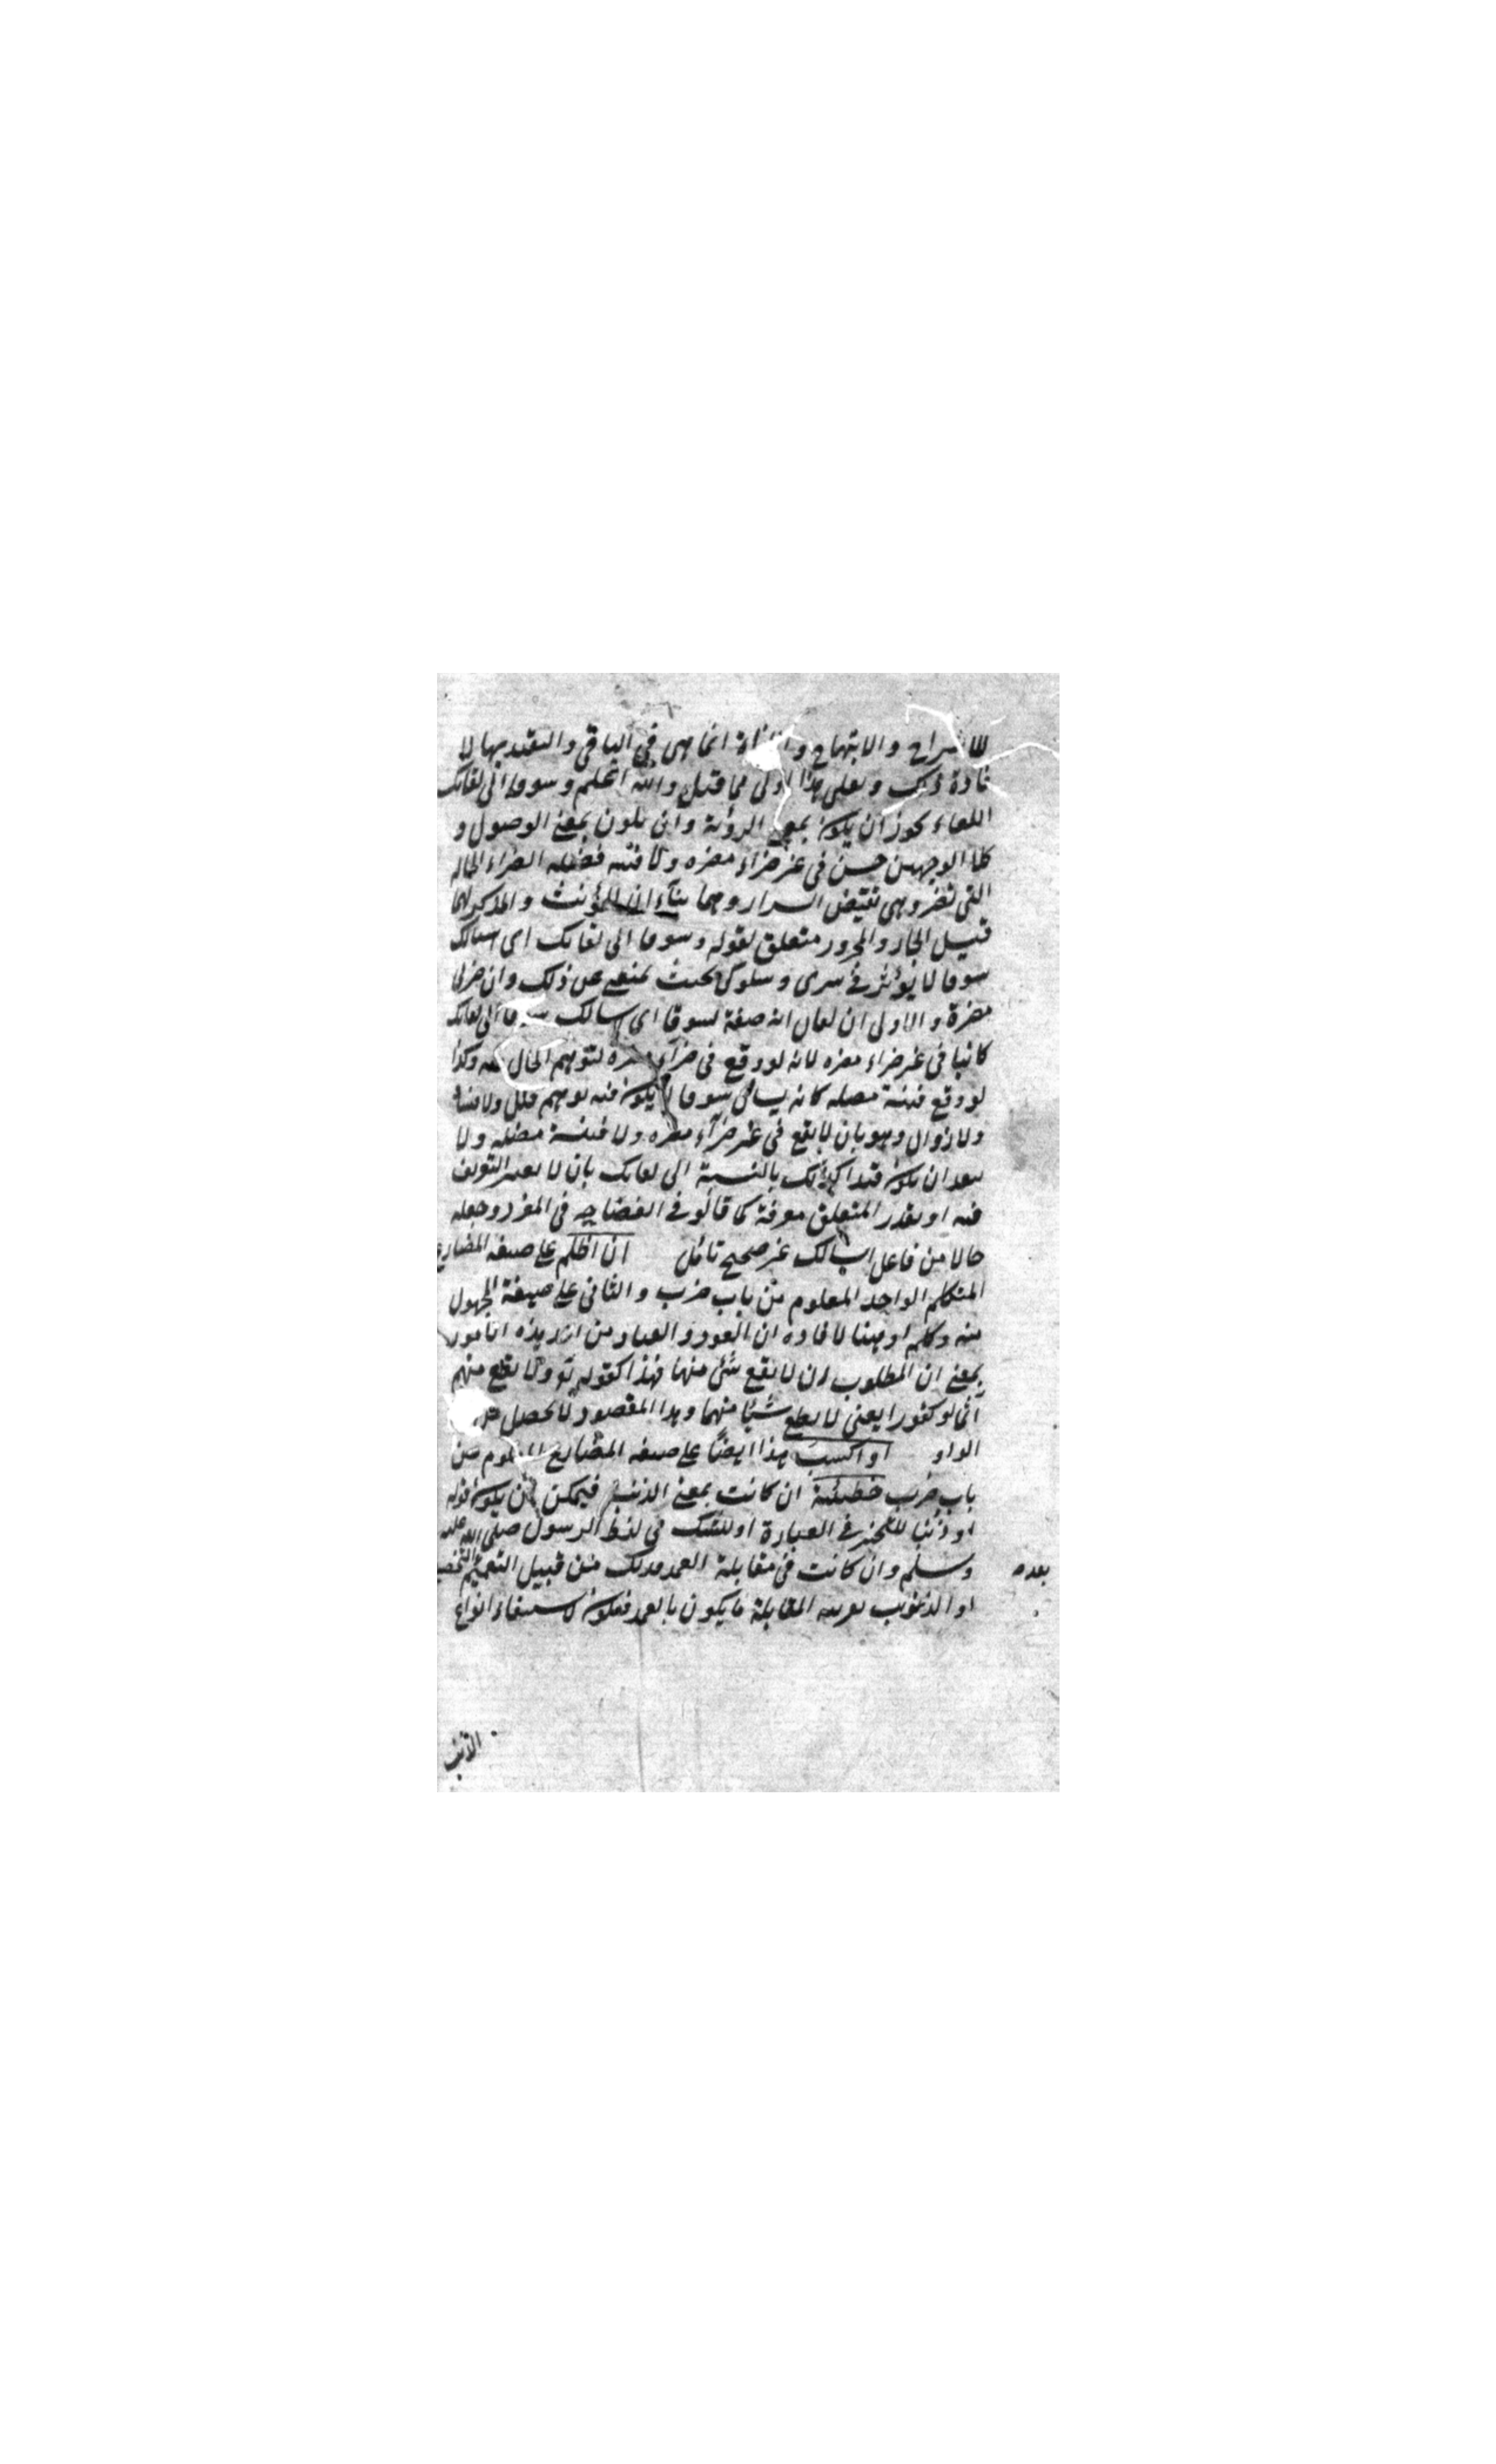 للانشراح والابتهاج و انما هي في الباقي والتقييد بها لا
فادة ذلك ولعل هذا اولى مما قيل والله اعلم وشوقا الى لقائك
اللقاء يجوز ان يكون بمعنى الرؤية وان يكون بمعنى الوصول و
كلا الوجهين حسن في غير ضراء مضرة ولا فتنة مضلة الضراء الحالة
التي تضر وهي نقيض السراء وهما بناءان للمؤنث والمذكر لهما
قيل الجار والمجرور متعلق بقوله وشوقا الى لقائك اى اسالك
شوقا لا يؤثر في سيرى وسلوكى بحيث يمنعنى عن ذلك وان ضرنى
مضرة والاولى ان يقال انه صفة لشوقا اى اسالك شوقا الى لقائك
كائنا في غير ضراء مضرة لانه لو وقع في ضراء مضرة لتوهم الحال وكذا
لو وقع فتنة مضلة كانه يسالى شوقا لا يكون فيه توهم خلل ولا
ولا زوال وهو بان لا يقع في غير ضراء مضرة ولا فتنة مضلة ولا
يبعد ان يكون قيدا لذلك بالنسبة الى لقائك بان لا يعتبر التوقيت
فيه او يقدر المتعلق معرفة كما قالوا في الفصاحة في المفرد وجعله
حالا من فاعل اسالك غير صحيح تامل ان اظلم على صيغة المضارع
المتكلم الواحد المعلوم من باب ضرب والثانى على صيغة المجهول
منه وكلمة او هنا لافادة ان العوذ والعياذ من هذه الامور
بمعنى ان المطلوب ان لا يقع شئ منها فهذا كقوله تع ولا تطع منهم
آثما او كفورا يعنى لا تطع شيئا منهما وهذا المقصود لا يحصل من
الواو او اكسب هذا ايضا على صيغة المضارع المعلوم من
باب ضرب خطيئة ان كانت بمعنى الذنب فيمكن ان يكون قوله
او ذنبا للتخيير في العبارة او للشك في لفظ الرسول صلى الله عليه
وسلم وان كانت في مقابلة العمد فذلك من قبيل التعميم والتخصيص
بعده
او الذنوب بقرينة المقابلة ما يكون بالعمد فيكون لاستيفاء انواع